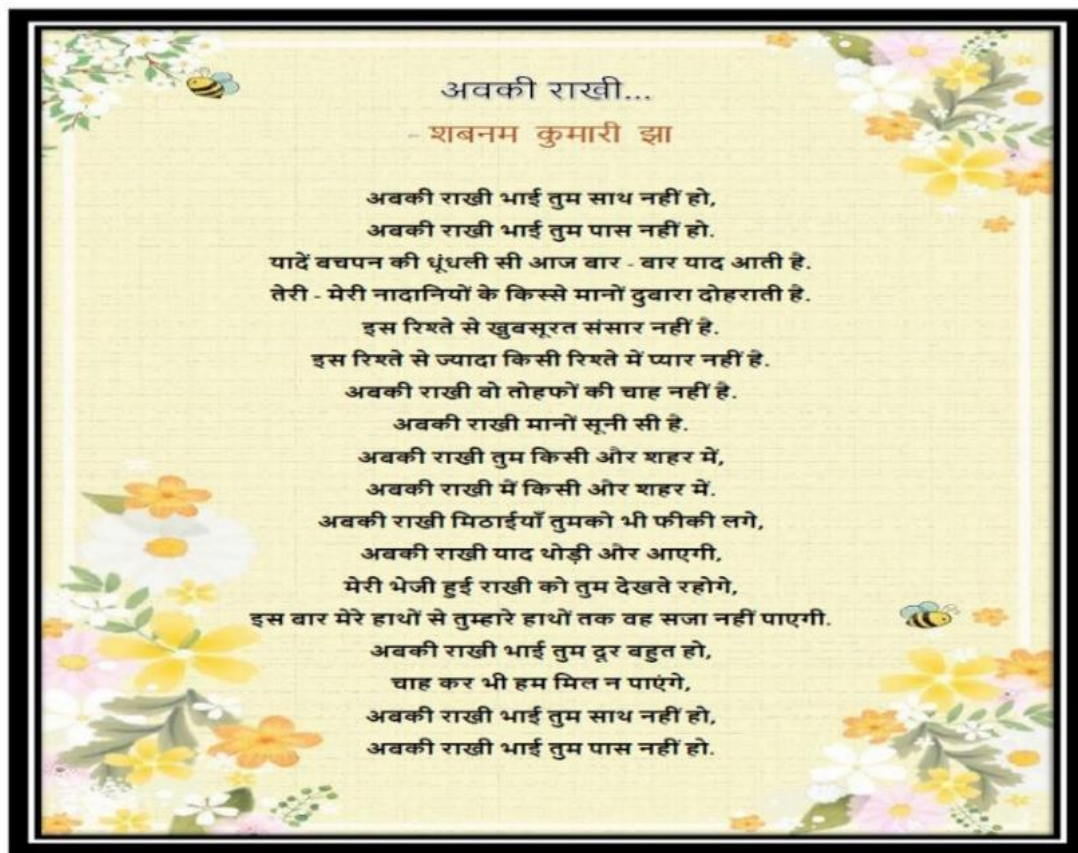 अवकी राखी...
- शबनम कुमारी झा
अबकी राखी भाई तुम साथ नहीं हो,
अबकी राखी भाई तुम पास नहीं हो.
यादें बचपन की धूंधली सी आज बार - बार याद आती है.
तेरी - मेरी नादानियों के किस्से मानों दुबारा दोहराती है.
इस रिश्ते से खुबसूरत संसार नहीं है.
इस रिश्ते से ज्यादा किसी रिश्ते में प्यार नहीं है.
अबकी राखी वो तोहफों की चाह नहीं है.
अबकी राखी मानों सूनी सी है.
अबकी राखी तुम किसी और शहर में,
अबकी राखी मैं किसी और शहर में.
अबकी राखी मिठाईयाँ तुमको भी फीकी लगे,
अबकी राखी याद थोड़ी और आएगी,
मेरी भेजी हुई राखी को तुम देखते रहोगे,
इस बार मेरे हाथों से तुम्हारे हाथों तक वह सजा नहीं पाएगी.
अबकी राखी भाई तुम दूर बहुत हो,
चाह कर भी हम मिल न पाएंगे,
अबकी राखी भाई तुम साथ नहीं हो,
अबकी राखी भाई तुम पास नहीं हो.